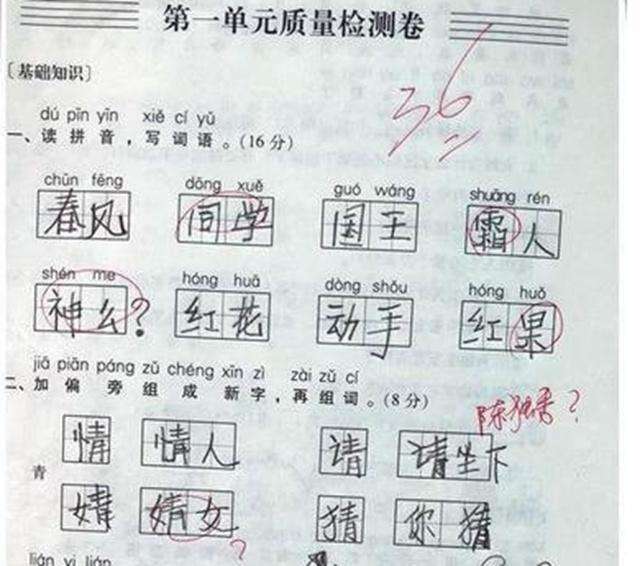 第一单元质量检测卷
36
〔基础知识〕
dú pīn yīn xiě cí yǔ
一、读拼音，写词语。(16分)
chūn fēng dōng xuě guó wáng shuāng rén
春风 同学 国王 霜人
shén me hóng huā dòng shǒu hóng huǒ
神么? 红花 动手 红果
jiā piān páng zǔ chéng xīn zì zài zǔ cí
二、加偏旁组成新字，再组词。(8分)
陈独秀?
情 情人 请 请坐下
青
婧 婧女 猜 你猜
?
lián yi lián